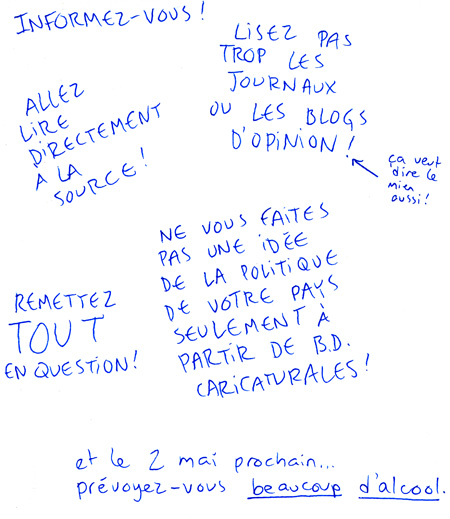 INFORMEZ-VOUS!
LISEZ PAS
TROP LES
JOURNAUX
OU LES BLOGS
D'OPINION!
ça veut
dire le
mien
aussi!
ALLEZ
LIRE
DIRECTEMENT
À LA
SOURCE!
NE VOUS FAITES
PAS UNE IDÉE
DE LA POLITIQUE
DE VOTRE PAYS
SEULEMENT À
PARTIR DE B.D.
CARICATURALES!
REMETTEZ
TOUT
EN QUESTION!
et le 2 mai prochain...
prévoyez-vous beaucoup d'alcool.